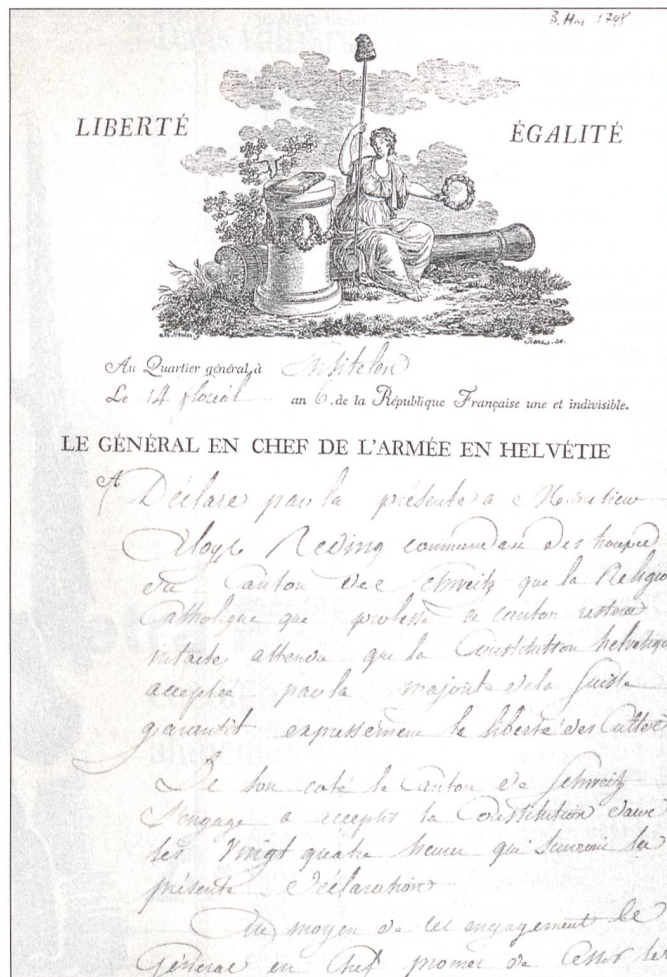 3. Mai 1798
LIBERTÉ ÉGALITÉ
Au Quartier général, à
Le 14 floréal an 6. de la République Française une et indivisible.
LE GÉNÉRAL EN CHEF DE L'ARMÉE EN HELVÉTIE
A
Déclare par la présente a Monsieur
Aloyse Reding commandant des troupes
du Canton de Schweitz que la Religion
Catholique que professe ce canton restera
intacte attendu que la Constitution helvetique
acceptée par la majorité de la Suisse
garantit expressement la liberté des Cultes
De son coté le Canton de Schweitz
S'engage a accepter la Constitution dans
les vingt quatre heures qui suivront la
présente Déclaration
Au moyen de cet engagement le
Général en Chef promet de Cesser les